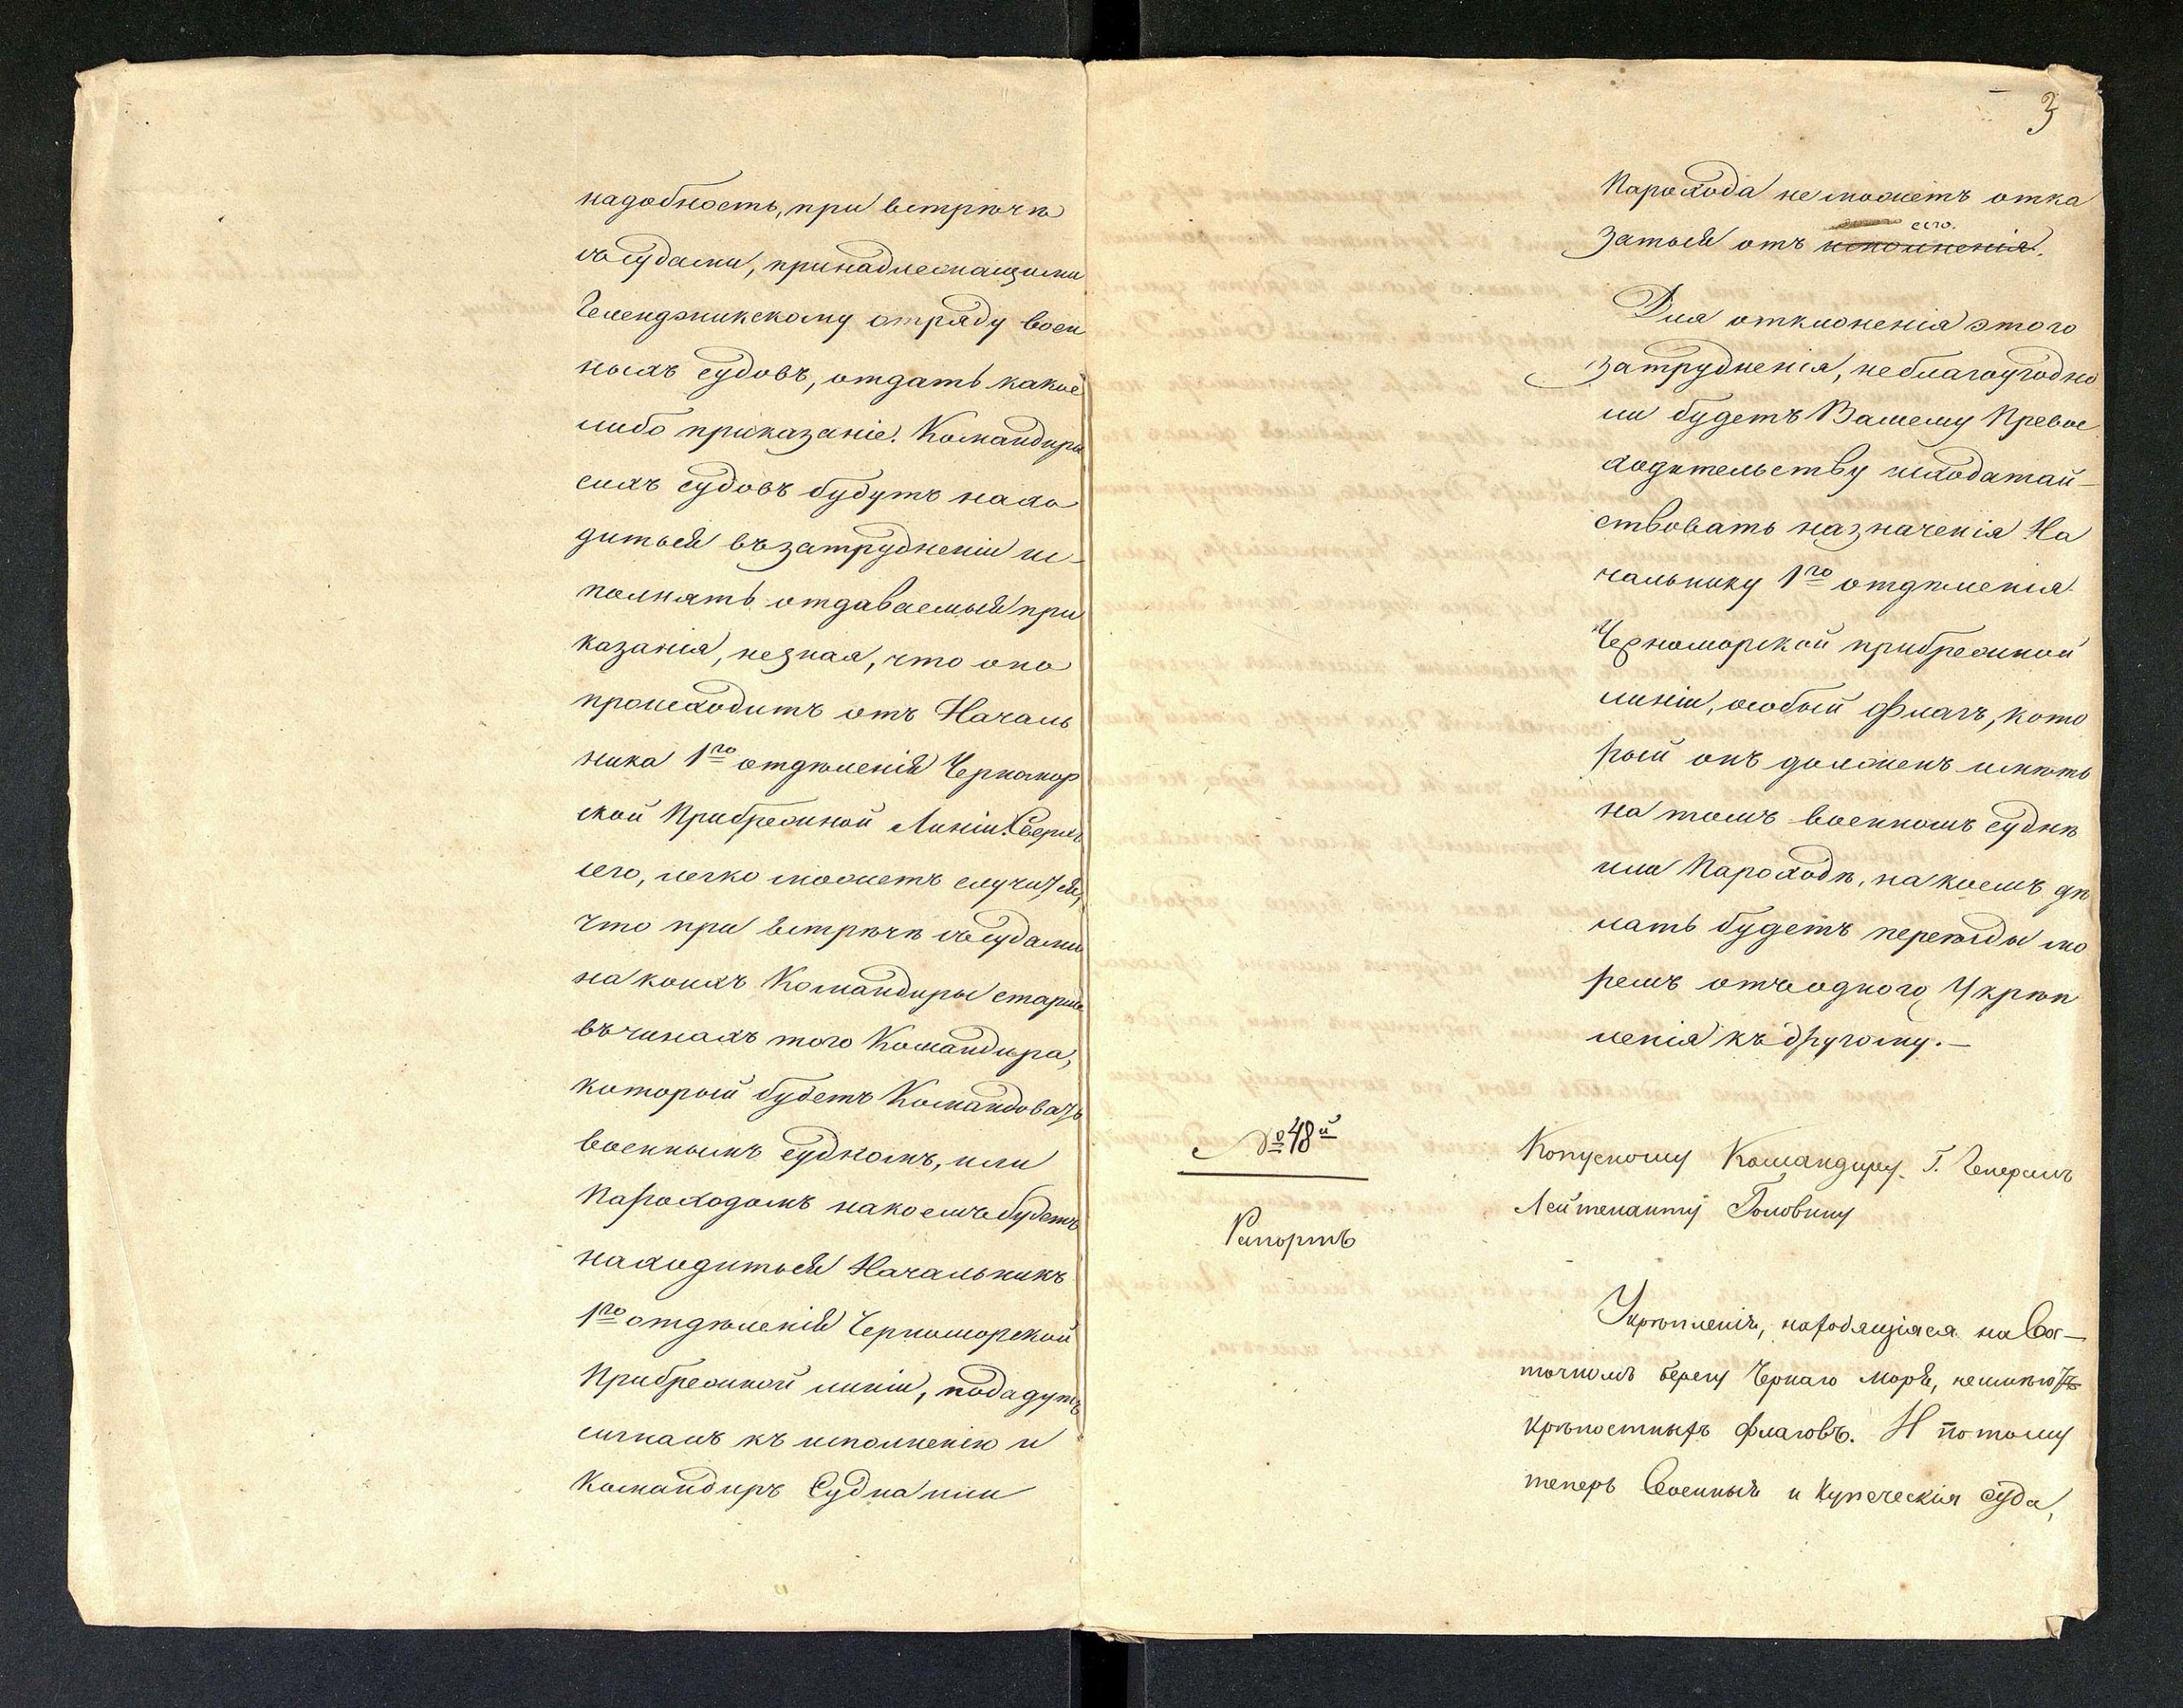 надобность, при встрѣчѣ
съ судами, принадлежащими
Геленджикскому отряду воен
ныхъ судовъ, отдать какое
либо приказаніе. Командиры
сихъ судовъ будутъ нахо
диться въ затрудненіи ис-
полнять отдаваемыя при
казанія, не зная, что оно
происходитъ отъ Началь
ника 1го отдѣленія Черномор
ской Прибрежной Линіи. Сверхъ
сего, легко можетъ случиться,
что при встрѣчѣ съ судами
на коихъ Командиры старше
въ чинахъ того Командира,
который будетъ Командовать
военнымъ судномъ, или
Пароходомъ на коемъ будетъ
находиться Начальникъ
1го отдѣленія Черноморской
Прибрежной линіи, подадутъ
сигналъ къ исполненію и
Командиръ Судна или
3
Парохода не можетъ отка
его.
заться отъ исполненія.
Для отклоненія этого
затрудненія, не благоугодно
ли будетъ Вашему Превос
ходительству исходатай-
ствовать назначенія На
чальнику 1го отдѣленія
Черноморской прибрежной
линіи, особый Флагъ, кото
рый онъ долженъ имѣть
на томъ военномъ суднѣ
или Пароходѣ, на коемъ дѣ
лать будетъ переѣзды мо
ремъ отъ одного Укрѣп
ленія къ другому.—
№ 48й
Рапортъ
Корпусному Командиру Г. Генералъ
Лейтенанту Головину
Укрѣпленія, находящіяся на Вос-
точномъ берегу Чернаго моря, не имѣютъ
крѣпостныхъ флаговъ. И потому
теперь Военныя и Купеческія суда,